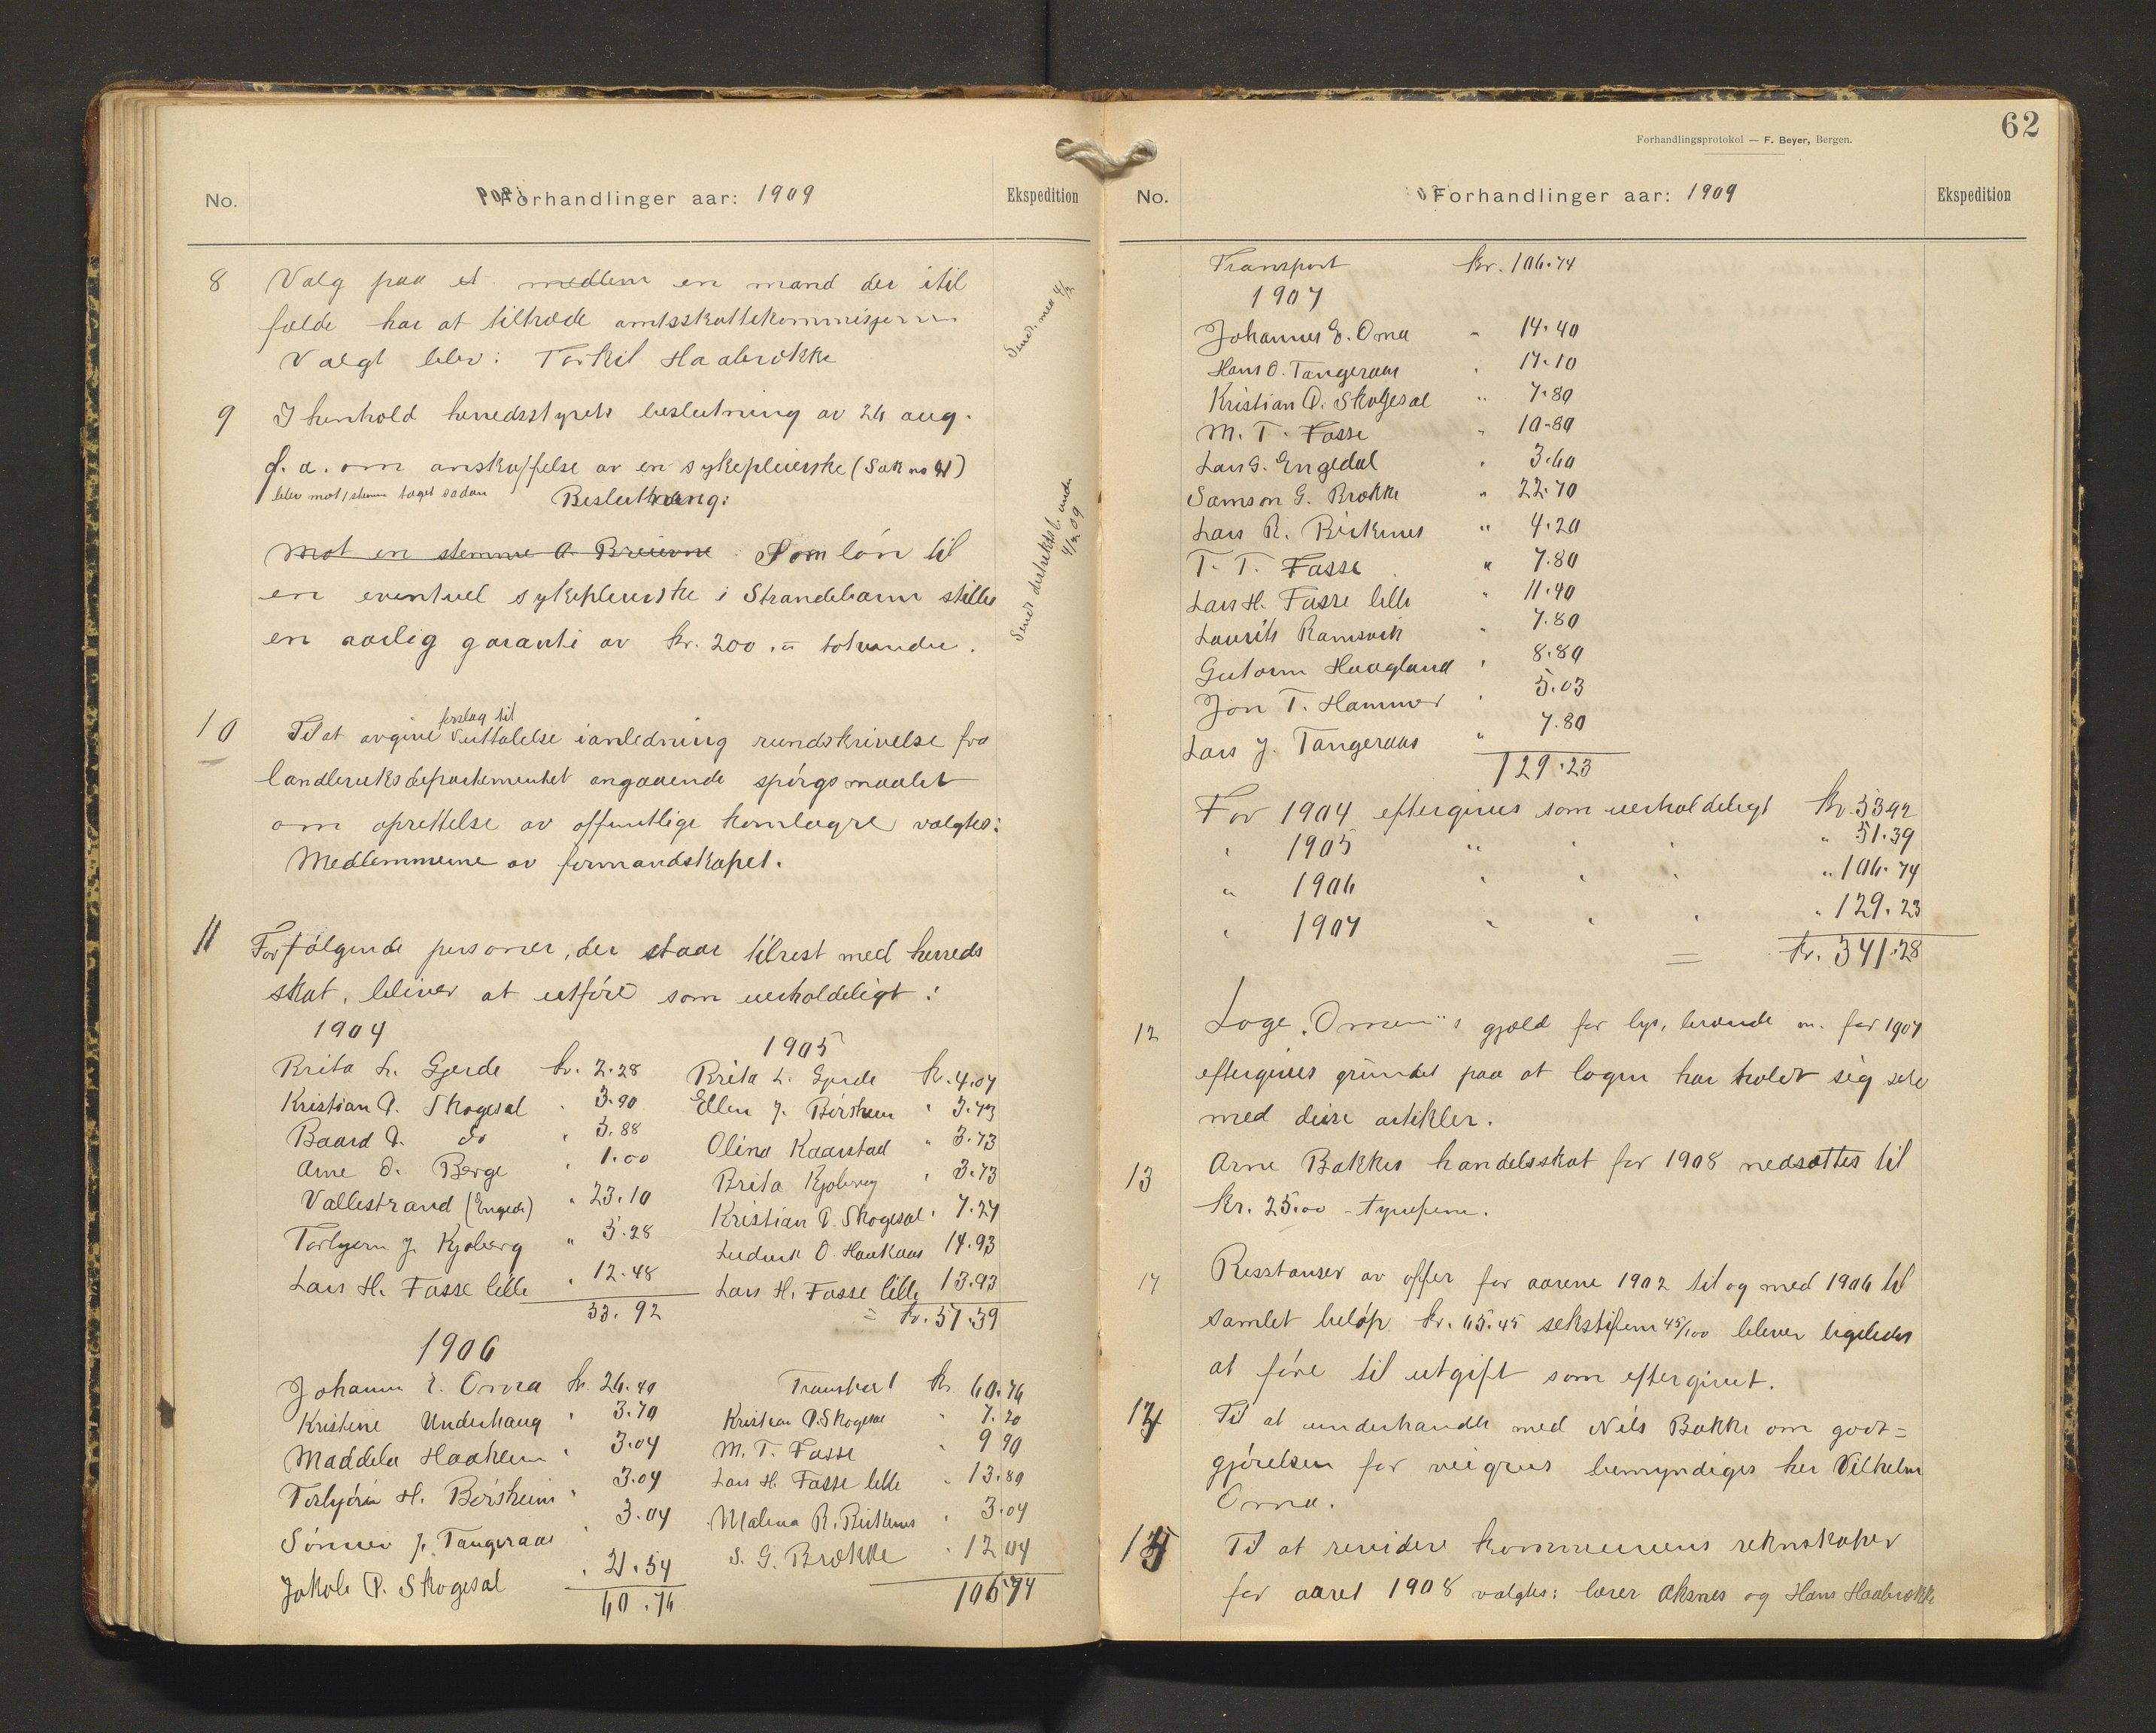 No.
Forhandlinger aar: 1909
Ekspedition
8 Valg paa et medlem en mand der itil
fælde har at tiltræde amtsskattekommisjonen
Valgt blev: Torkil Haabrekke
9 I henhold herredsstyrets beslutning av 26 aug.
f. a. om anskaffelse av en sykepleierske (Sak no 41)
blev mot 1 stemme taget sadan Beslutning:
Mot en stemme A Breievne Som løn til
en eventuel sykepleierske i Strandebarm stilles
en aarlig garanti av kr. 200.= tohundre.
10 Til at avgive forslag til uttalelse ianledning rundskrivelse fra
landbruksdepartementet angaaende spørgsmaalet
om oprettelse av offentlige kornlagre valgtes:
Medlemmerne av formandskapet.
11 For følgende personer, der staar tilrest med herreds
skat, bliver at utføre som uerholdeligt:
1904
1905
Brita L. Gjerde kr. 2.28
Kristian A. Skogesal " 3.90
Baard A. do " 5.88
Arne O. Berge " 1.00
Vallestrand (Enged) " 23.10
Torbjørn J. Kjoberg " 5.28
Lars H. Fosse lille " 12.48
53.92
Brita L. Gjerde kr. 4.07
Ellen J. Børsheim " 3.73
Olina Kaarstad " 3.73
Brita Kjoberg " 3.73
Kristian A. Skogesal " 7.27
Ludvik O. Haukaas 14.93
Lars H. Fosse lille 13.93
= kr. 51.39
1906
Johannes E. Oma kr. 26.40
Kristine Underhaug " 3.70
Maddela Haaheim " 3.04
Torbjørn H. Børsheim " 3.04
Sønnev J. Tangeraas " 3.04
Jakob A. Skogesal " 21.54
60.76
Transport kr. 60.76
Kristian A. Skogesal " 7.20
M. T. Fosse " 9 90
Lars H. Fosse lille " 13.80
Malena R. Birkenes " 3.04
S. G. Brekke " 12 04
106 74
Sendt med 4/2
Sendt distriktsl. under 4/2 09
62
Forhandlingsprotokol — F. Beyer, Bergen.
No.
Forhandlinger aar: 1909
Ekspedition
Transport kr. 106.74
1907
Johannes E. Oma " 14.40
Hans O. Tangeraas " 17.10
Kristian A. Skogesal " 7.80
M. T. Fosse " 10.80
Lars G. Engedal " 3.60
Samson G. Brekke " 22.70
Lars R. Birkenes " 4.20
T. T. Fosse " 7.80
Lars H. Fosse lille " 11.40
Laurits Ramsvik " 7.80
Gutorm Haagland " 8.80
Jon T. Hammer " 5.03
Lars J. Tangeraas " 7.80
129.23
For 1904 eftergives som uerholdeligt kr. 53 92
" 1905 " " " " 51.39
" 1906 " " " " 106.74
" 1907 " " " " 129.23
= kr. 341.28
12 Loge "Omen"s gjæld for lys, brænde m. for 1907
eftergives grundet paa at logen har holdt sig selv
med disse artikler.
13 Arne Bakkes handelsskat for 1908 nedsættes til
kr. 25.00 - tyvefem.
14 Resstanser av offer for aarene 1902 til og med 1906 til
samlet beløp kr. 65.45 sekstifem 45/100 bliver ligeledes
at føre til utgift som eftergivet.
14 Til at underhandle med Nils Bakke om godt=
gjørelsen for veigrus bemyndiges her Vilhelm
Oma.
15 Til at revidere kommunens reknskaper
for aaret 1908 valgtes: lærer Aksnes og Hans Haabrekke